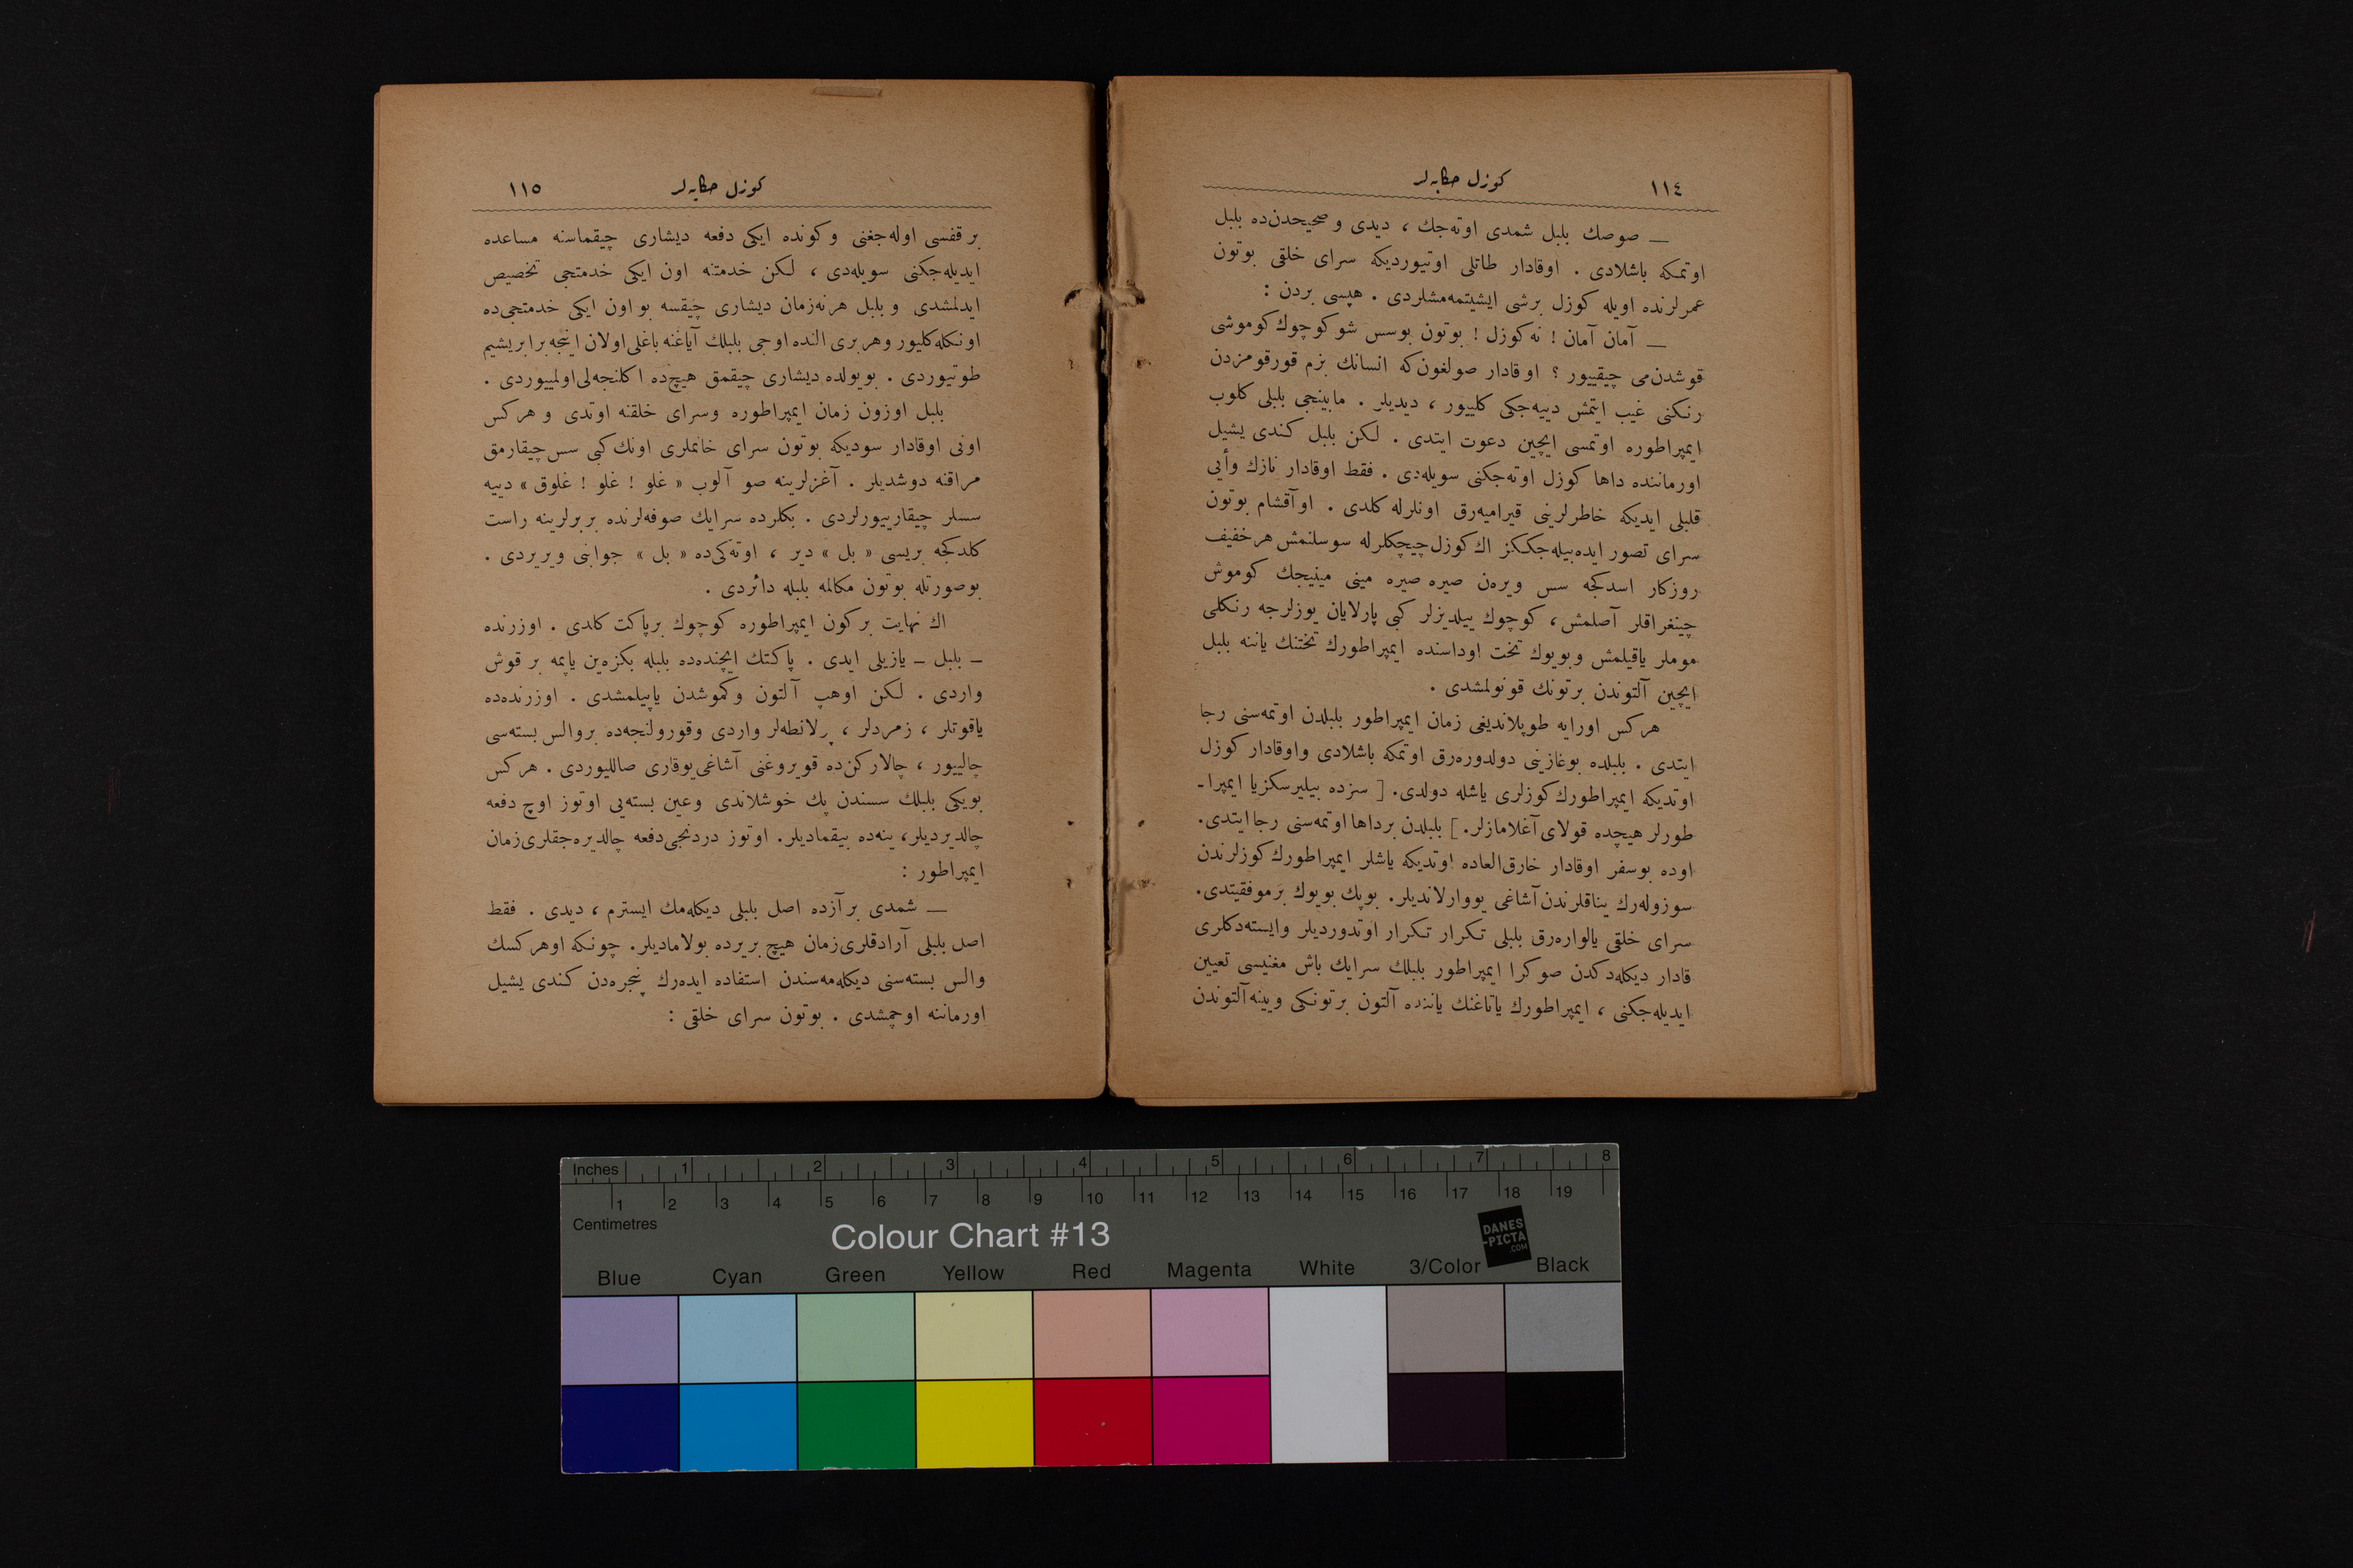 ١١٤
كوزل حكايه‌لر
— صوصك بلبل شمدی اوته‌جك ، ديدی و صحيحدن‌ده بلبل
اوتمكه باشلادی . اوقادار طاتلی اوتيورديكه سرای خلقی بوتون
عمرلرنده اويله كوزل برشی ايشيتمه‌مشلردی . هپسی بردن :
— آمان آمان ! نه‌كوزل ! بوتون بوسس شو كوچوك كوموشی
قوشدن‌می چيقييور ؟ اوقادار صولغون‌كه انسانك بزم قورقومزدن
رنكنی غيب ايتمش دييه‌جكی كلييور ، ديديلر . مابينجی بلبلی كلوب
ايمپراطوره اوتمسی ايچين دعوت ايتدی . لكن بلبل كندی يشيل
اورماننده داها كوزل اوته‌جكنی سويله‌دی . فقط اوقادار نازك وأيی
قلبلی ايديكه خاطرلرينی قيراميه‌رق اونلرله كلدی . اوآقشام بوتون
سرای تصور ايده‌بيله‌جككز اك كوزل چيچكلرله سوسلنمش هرخفيف
روزكار اسدكجه سس ويره‌ن صيره صيره مينی مينيجك كوموش
چينغراقلر آصلمش، كوچوك ييلديزلر كبی پارلايان يوزلرجه رنكلی
موملر ياقيلمش وبويوك تخت اوداسنده ايمپراطورك تختنك ياننه بلبل
ايچين آلتوندن برتونك قونولمشدی .
هركس اورايه طوپلانديغی زمان ايمپراطور بلبلدن اوتمه‌سنی رجا
ايتدی . بلبلده بوغازينی دولدوره‌رق اوتمكه باشلادی واوقادار كوزل
اوتديكه ايمپراطورك كوزلری ياشله دولدی. [ سزده بيليرسكزيا ايمپرا-
طورلر هيچده قولای آغلامازلر. ] بلبلدن برداها اوتمه‌سنی رجا ايتدی.
اوده بوسفر اوقادار خارق‌العاده اوتديكه ياشلر ايمپراطورك كوزلرندن
سوزوله‌رك يناقلرندن آشاغی يووارلانديلر. بوپك بويوك برموفقيتدی.
سرای خلقی يالواره‌رق بلبلی تكرار تكرار اوتدورديلر وايسته‌دكلری
قادار ديكله‌دكدن صوكرا ايمپراطور بلبلك سرايك باش مغنيسی تعيين
ايديله‌جكنی ، ايمپراطورك ياتاغنك ياننده آلتون برتونكی ويينه آلتوندن
كوزل حكايه‌لر
١١٥
بر قفسی اوله‌جغنی وكونده ايكی دفعه ديشاری چيقماسنه مساعده
ايديله‌جكنی سويله‌دی ، لكن خدمتنه اون ايكی خدمتجی تخصيص
ايدلمشدی و بلبل هرنه‌زمان ديشاری چيقسه بو اون ايكی خدمتجی‌ده
اونكله كليور وهربری النده اوجی بلبلك آياغنه باغلی اولان اينجه برابريشيم
طوتيوردی . بويولده ديشاری چيقمق هيچ‌ده اكلنجه‌لی اولمييوردی .
بلبل اوزون زمان ايمپراطوره وسرای خلقنه اوتدی و هركس
اونی اوقادار سوديكه بوتون سرای خانملری اونك كبی سس چيقارمق
مراقنه دوشديلر . آغزلرينه صو آلوب « غلو ! غلو ! غلوق » دييه
سسلر چيقارييورلردی . بكلرده سرايك صوفه‌لرنده بربرلرينه راست
كلدكجه بريسی « بل » دير ، اوته‌كی‌ده « بل » جوابنی ويريردی .
بوصورتله بوتون مكالمه بلبله دائردی .
اك نهايت بركون ايمپراطوره كوچوك برپاكت كلدی . اوزرنده
- بلبل - يازيلی ايدی . پاكتك ايچنده‌ده بلبله بكزه‌ين ياپمه بر قوش
واردی . لكن اوهپ آلتون وكموشدن ياپيلمشدی . اوزرنده‌ده
ياقوتلر ، زمردلر ، پرلانطه‌لر واردی وقورولنجه‌ده بروالس بسته‌سی
چالييور ، چالاركن‌ده قويروغنی آشاغی‌يوقاری صاللييوردی . هركس
بويكی بلبلك سسندن پك خوشلاندی وعين بسته‌يی اوتوز اوچ دفعه
چالديرديلر، ينه‌ده بيقماديلر. اوتوز دردنجی‌دفعه چالديره‌جقلری‌زمان
ايمپراطور :
— شمدی برآزده اصل بلبلی ديكله‌مك ايسترم ، ديدی . فقط
اصل بلبلی آرادقلری‌زمان هيچ بريرده بولاماديلر. چونكه اوهركسك
والس بسته‌سنی ديكله‌مه‌سندن استفاده ايده‌رك پنجره‌دن كندی يشيل
اورماننه اوچمشدی . بوتون سرای خلقی :
Inches 1 2 3 4 5 6 7 8
1 2 3 4 5 6 7 8 9 10 11 12 13 14 15 16 17 18 19
Centimetres
Colour Chart #13
DANES
-PICTA
.COM
Blue Cyan Green Yellow Red Magenta White 3/Color Black